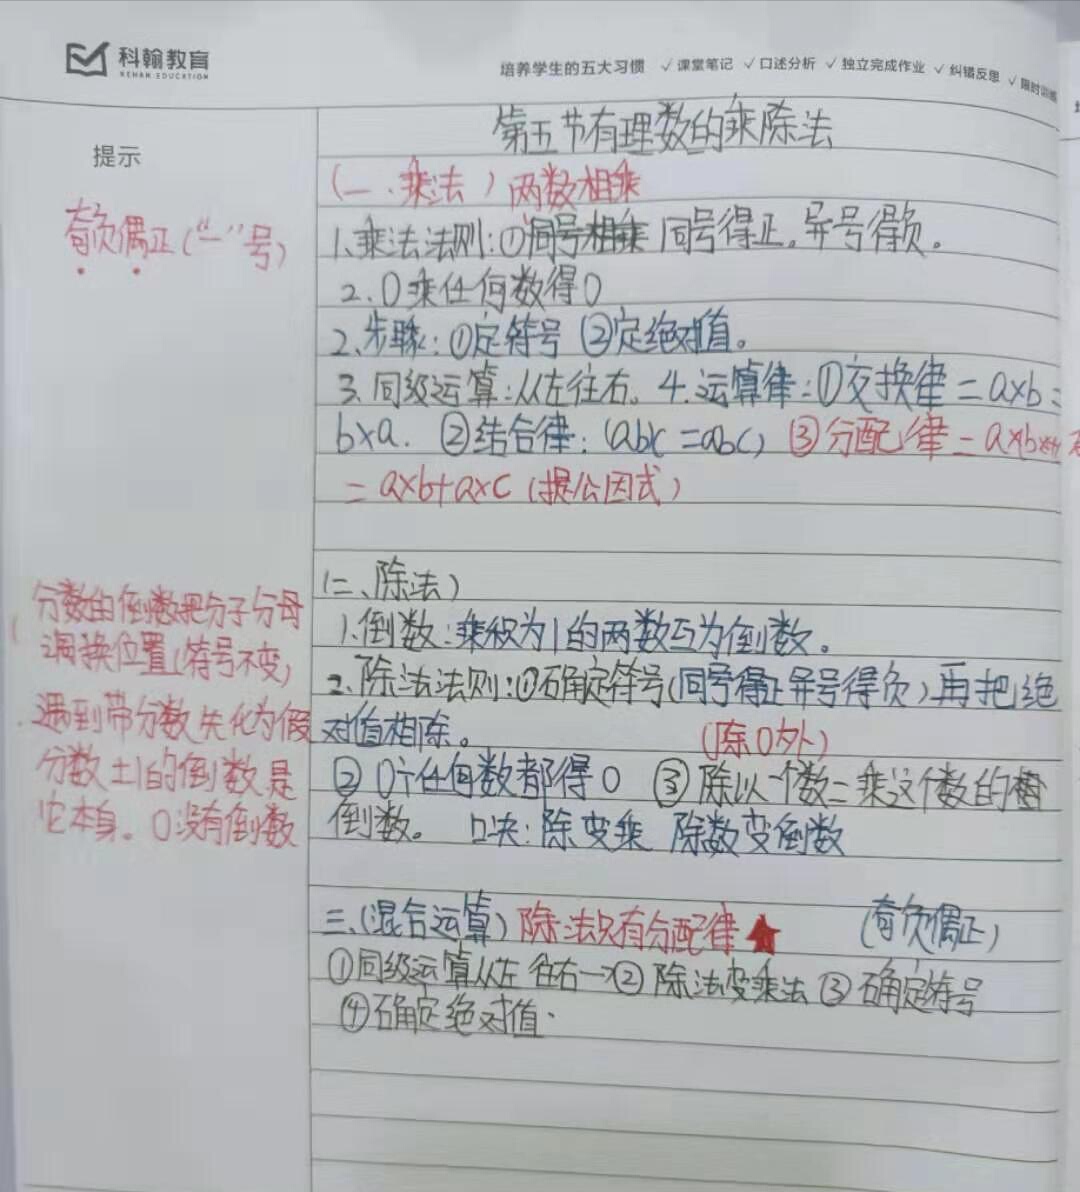 科翰教育
KEHAN EDUCATION
培养学生的五大习惯 ✓课堂笔记 ✓口述分析 ✓独立完成作业 ✓纠错反思 ✓限时
提示
第五节有理数的乘除法
(一、乘法) 两数相乘
奇负偶正(“—”号)
1、乘法法则:① 同号得正。异号得负。
2、0乘任何数得0
2、步骤:①定符号 ②定绝对值。
3、同级运算:从左往右。4、运算律:①交换律=a×b=
b×a. ②结合律:(ab)c=a(bc) ③分配律=a×
=a×b+a×c (提公因式)
(二、除法)
1、倒数:乘积为1的两数互为倒数。
2、除法法则:①确定符号(同号得正异号得负)再把绝
对值相除。 (除0外)
② 0÷任何数都得0 ③除以一个数=乘这个数的
倒数。 口决:除变乘 除数变倒数
分数的倒数把分子分母
调换位置(符号不变)
遇到带分数先化为假
分数±1的倒数是
它本身。0没有倒数
三、(混合运算)除法只有分配律★ (奇负偶正)
①同级运算从左往右→②除法变乘法③确定符号
④确定绝对值.